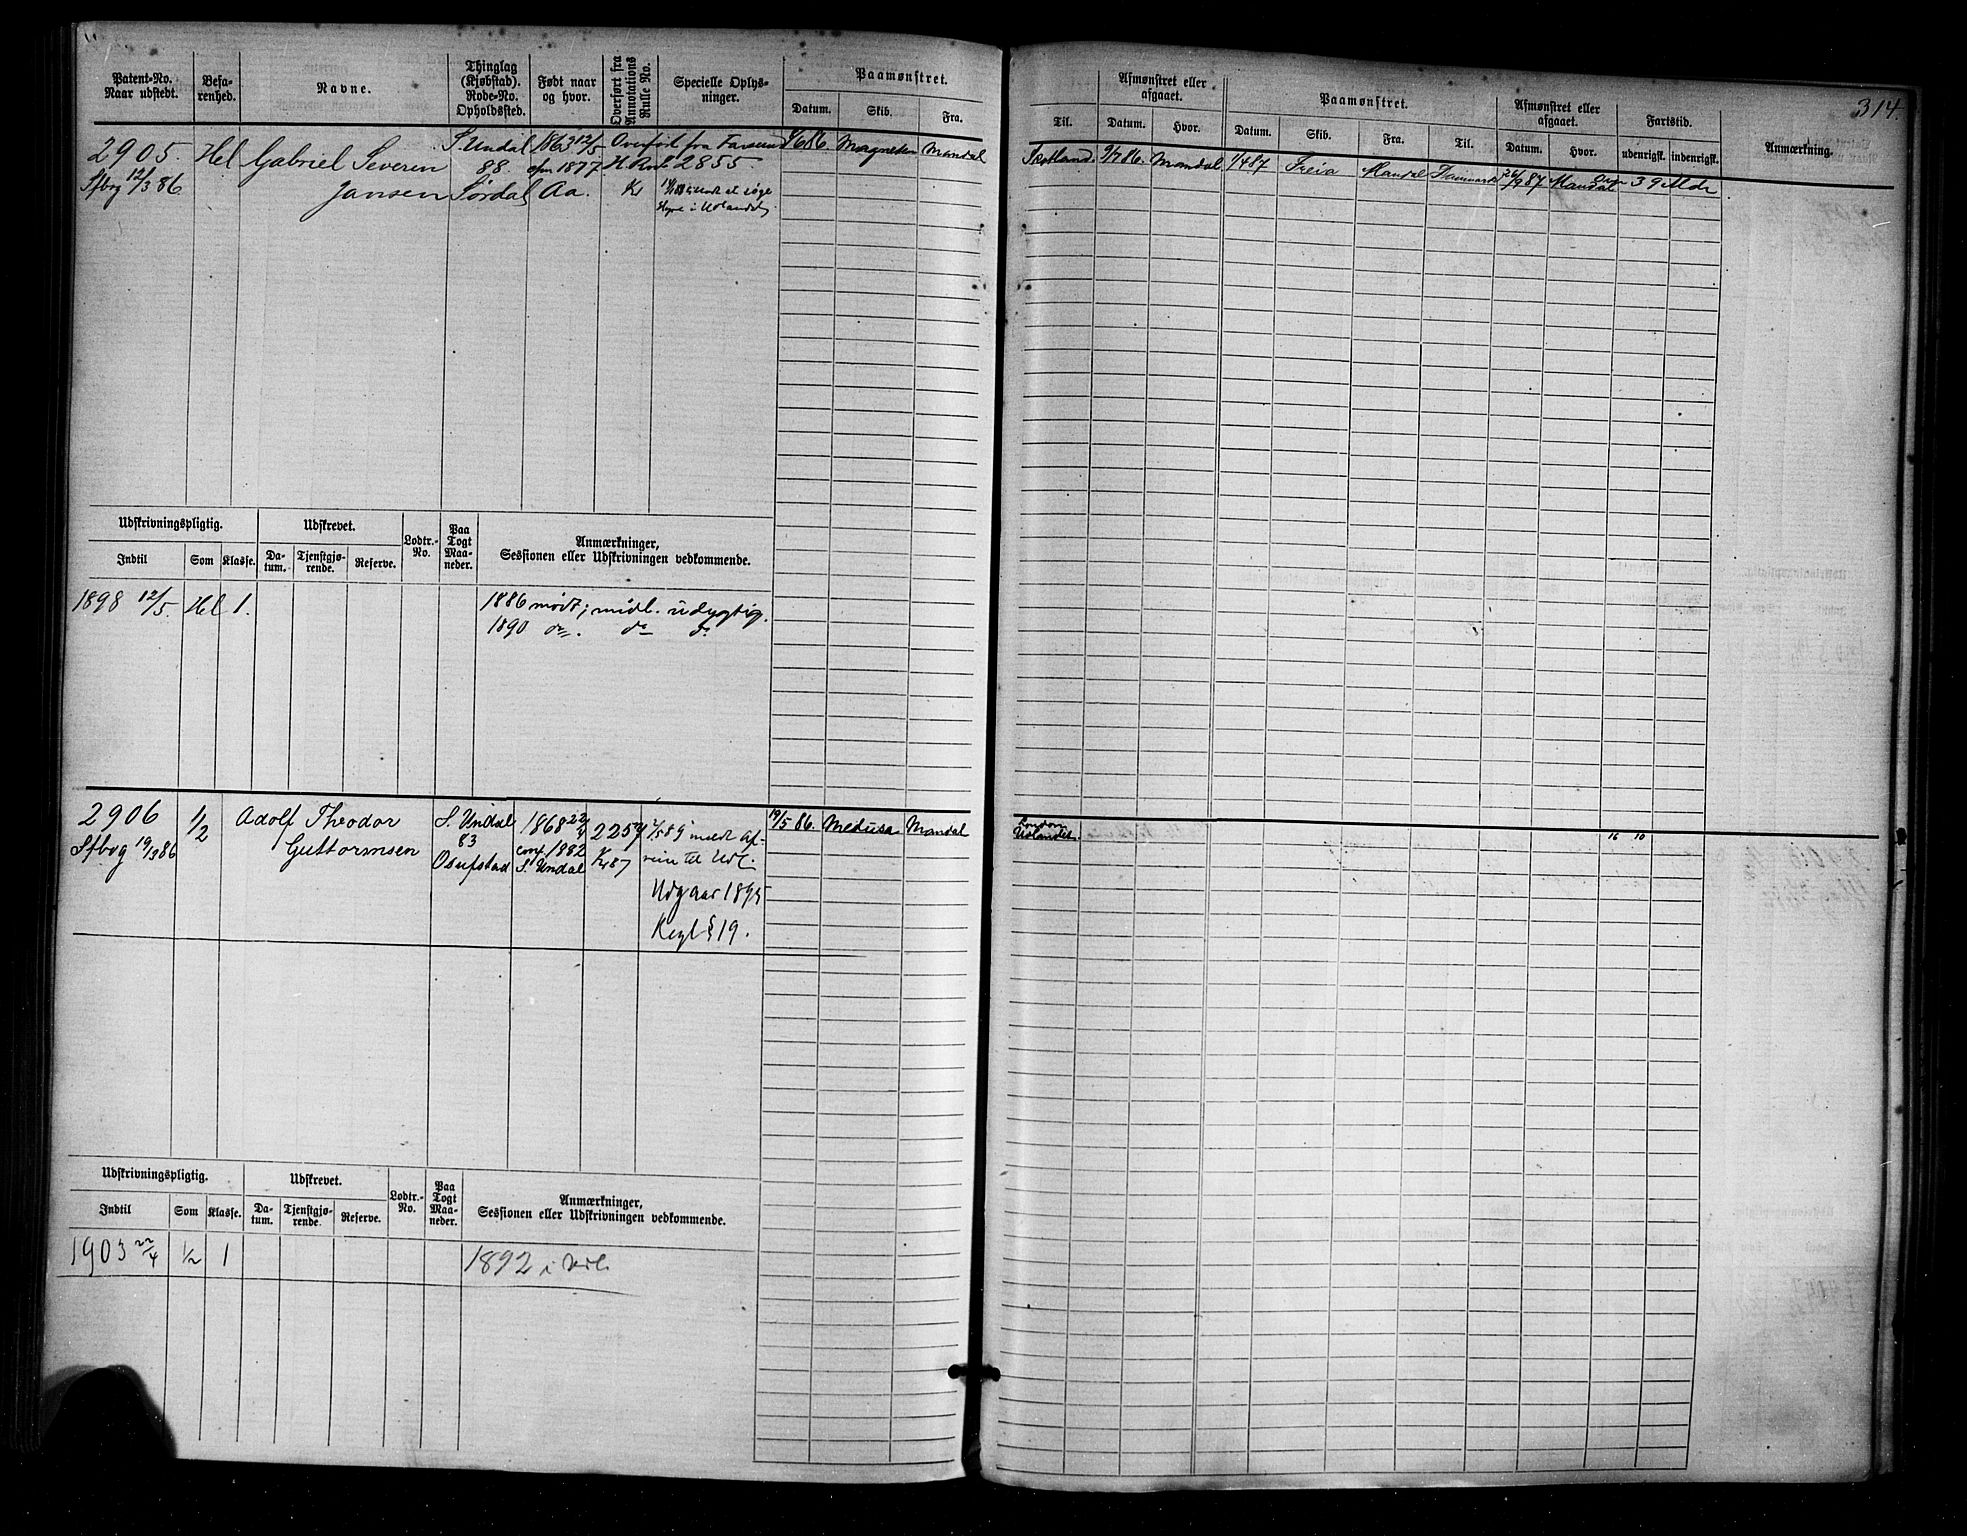 314.
Patent-No. Naar udstedt.
Befarenhed.
Navne.
Thinglag (Kjøbstad). Rode-No. Opholdssted.
Født naar og hvor.
Overført fra Annotations Rulle No.
Specielle Oplysninger.
Paamønstret.
Datum. Skib. Fra.
Til.
Afmønstret eller afgaaet.
Datum. Hvor.
Paamønstret.
Datum. Skib. Fra. Til.
Afmønstret eller afgaaet.
Datum. Hvor.
Fartstid.
udenrigsk. indenrigsk.
Anmærkning.
2905. Hel Gabriel Severen S. Undal 1863 12/5 Overført fra Farsund
12/3 86 Jansen 88. Sørdal 1877 Aa. 2855
86. Magneten Mandal Skotland. 9/7 86. Mandal 1/4 87 Freia Mandal Danmark 87 Mandal 39 Mdr
Udskrivningspligtig. Udskrevet. Lodtr.-No. Paa Togt Maaneder. Anmærkninger, Sessionen eller Udskrivningen vedkommende.
Indtil Som Klasse. Datum. Tjenstgjørende. Reserve.
1898 12/5. Hel 1. 1886 mødt; midl. udygtig.
1890 do. do do
2906 1/2 Adolf Theodor S. Undal 1868 22/4 2257
19/3 86 Guttormsen 83 conf. 1882
Osufstad S. Undal 87
Udgaar 1895
Regl § 19.
19/5 86. Medusa Mandal London Udlandet. 16 10
Udskrivningspligtig. Udskrevet. Lodtr.-No. Paa Togt Maaneder. Anmærkninger, Sessionen eller Udskrivningen vedkommende.
Indtil Som Klasse. Datum. Tjenstgjørende. Reserve.
1903 22/4 1/2 1 1892 i